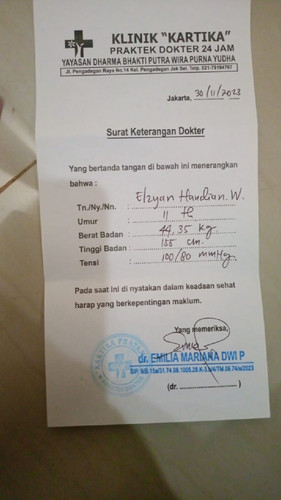 KLINIK "KARTIKA"
PRAKTEK DOKTER 24 JAM
YAYASAN DHARMA BHAKTI PUTRA WIRA PURNA YUDHA
Jl. Pengadegan Raya No.14 Kel. Pengadegan Jak Sel. Telp. 021-79194761
Jakarta, 30/11/2023
Surat Keterangan Dokter
Yang bertanda tangan di bawah ini menerangkan
bahwa :
Tn./Ny./Nn. : Elzyan Handian. W.
Umur : 11 th
Berat Badan : 44,35 kg
Tinggi Badan : 155 cm.
Tensi : 100/80 mmHg.
Pada saat ini di nyatakan dalam keadaan sehat
harap yang berkepentingan maklum.
Yang memeriksa,
KARTIKA
dr. EMILIA MARIANA DWI P
(dr. )